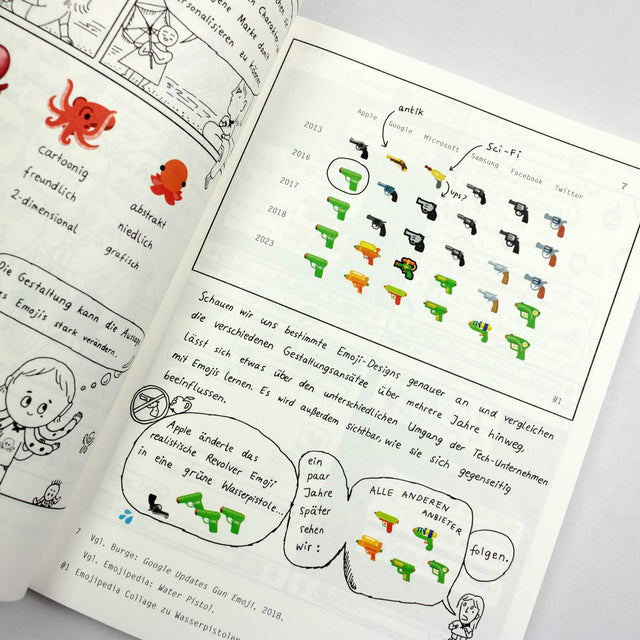 gene Marke damit
personalisieren zu können
cartoonig
freundlich
2-dimensional
abstrakt
niedlich
grafisch
Die Gestaltung kann die
Emojis stark verändern.
antik
Sci-Fi
Apple Google Microsoft Samsung Facebook Twitter
7
2013
2016
ups?
2017
2018
2023
#1
Schauen wir uns bestimmte Emoji-Designs genauer an und vergleichen
die verschiedenen Gestaltungsansätze über mehrere Jahre hinweg,
lässt sich etwas über den unterschiedlichen Umgang der Tech-Unternehmen
mit Emojis lernen. Es wird außerdem sichtbar, wie sie sich gegenseitig
beeinflussen.
Apple änderte das
realistische Revolver Emoji
in eine grüne Wasserpistole...
ein
paar
Jahre
später
sehen
wir:
ALLE ANDEREN
ANBIETER
folgen.
7 Vgl. Burge: Google Updates Gun Emoji, 2018.
Vgl. Emojipedia: Water Pistol.
#1 Emojipedia Collage zu Wasserpistolen